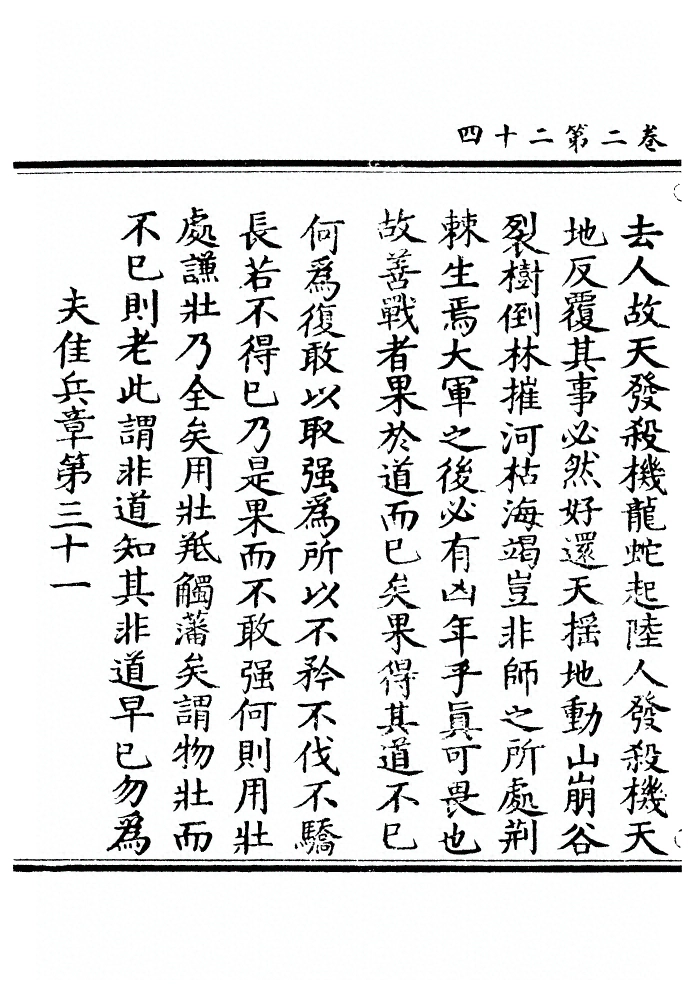 卷二第二十四
去人故天發殺機龍蛇起陸人發殺機天
地反覆其事必然好還天揺地動山崩谷
裂樹倒林摧河枯海竭豈非師之所處荆
棘生焉大軍之後必有凶年乎眞可畏也
故善戰者果於道而已矣果得其道不已
何爲復敢以取强爲所以不矜不伐不驕
長若不得已乃是果而不敢强何則用壯
處謙壯乃全矣用壯羝觸藩矣謂物壯而
不已則老此謂非道知其非道早已勿爲
夫佳兵章第三十一